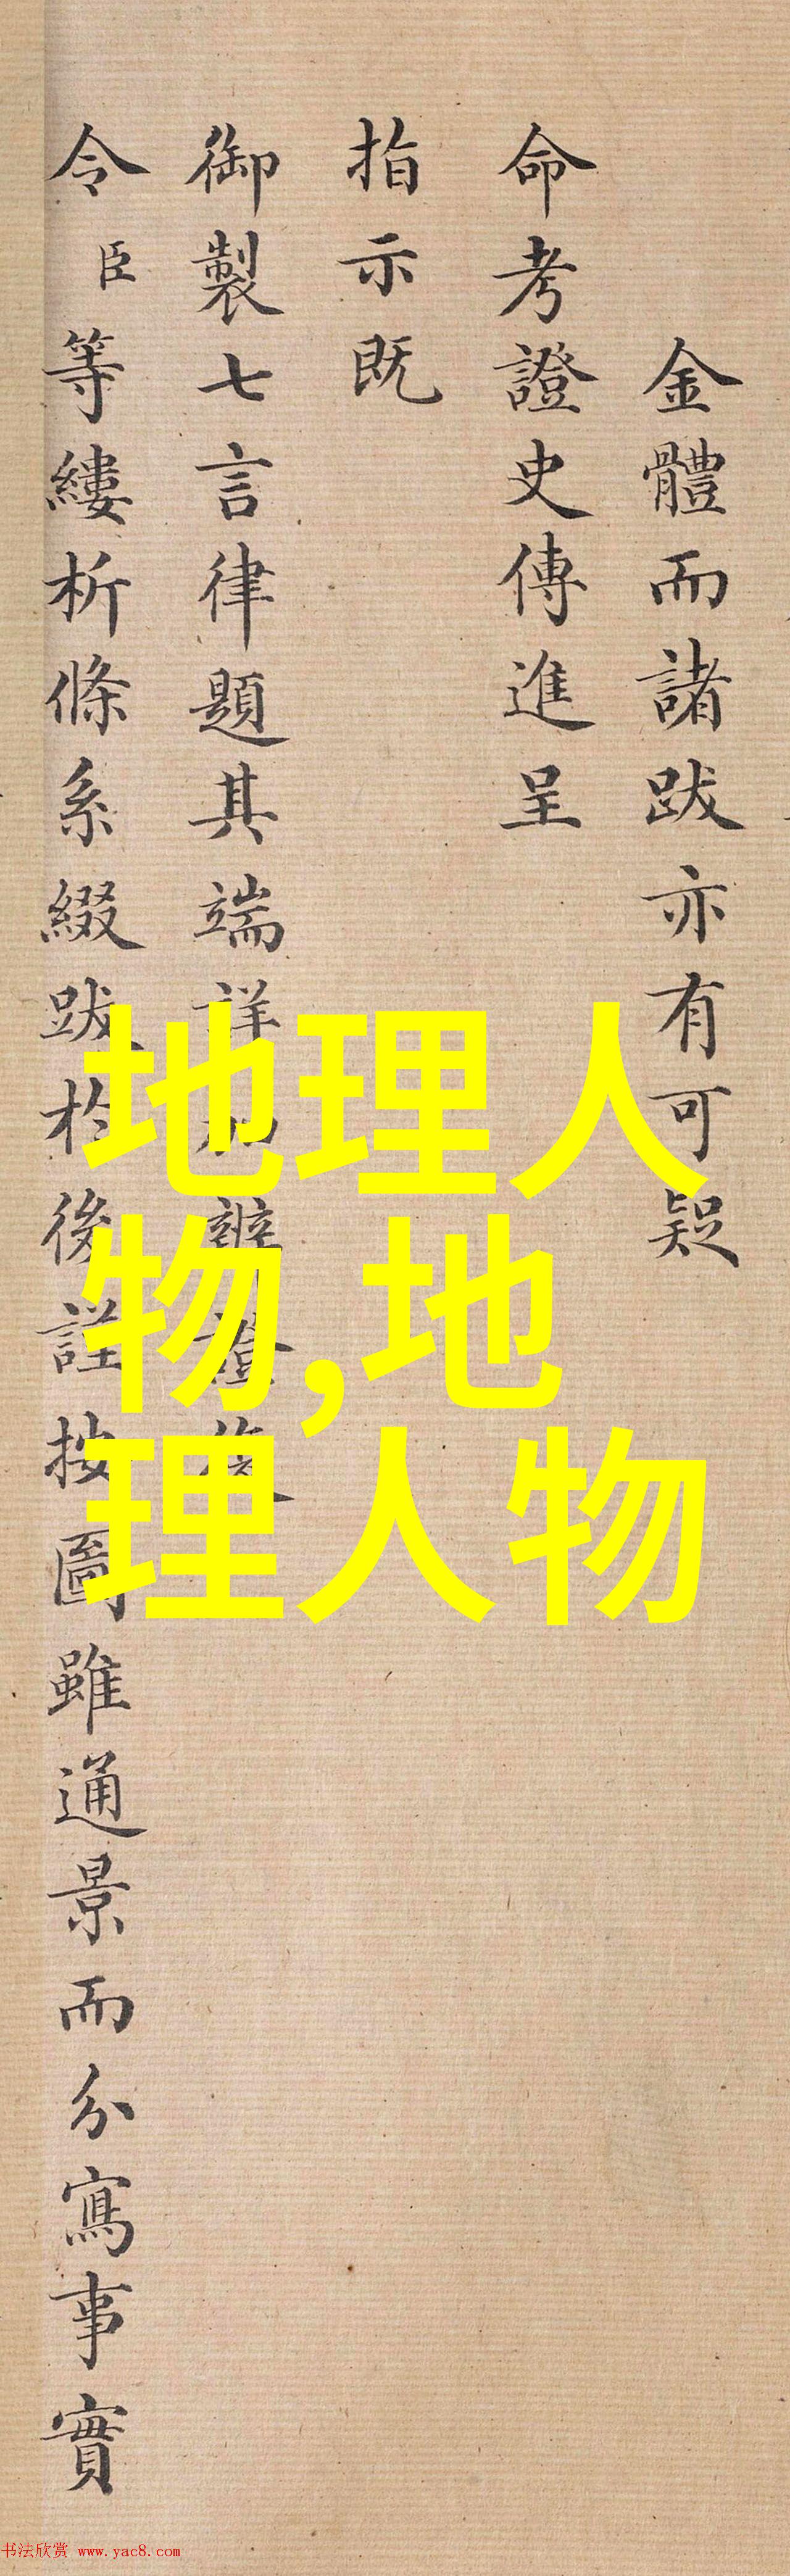 金體而諸跋亦有可疑
命考證史傳進呈
指示既
御製七言律題其端詳辨證後
令臣等縷析條系綴跋於後謹按圖雖通景而分寫事實
地理人
物,地
理人物
书法欣赏 www.yac8.com